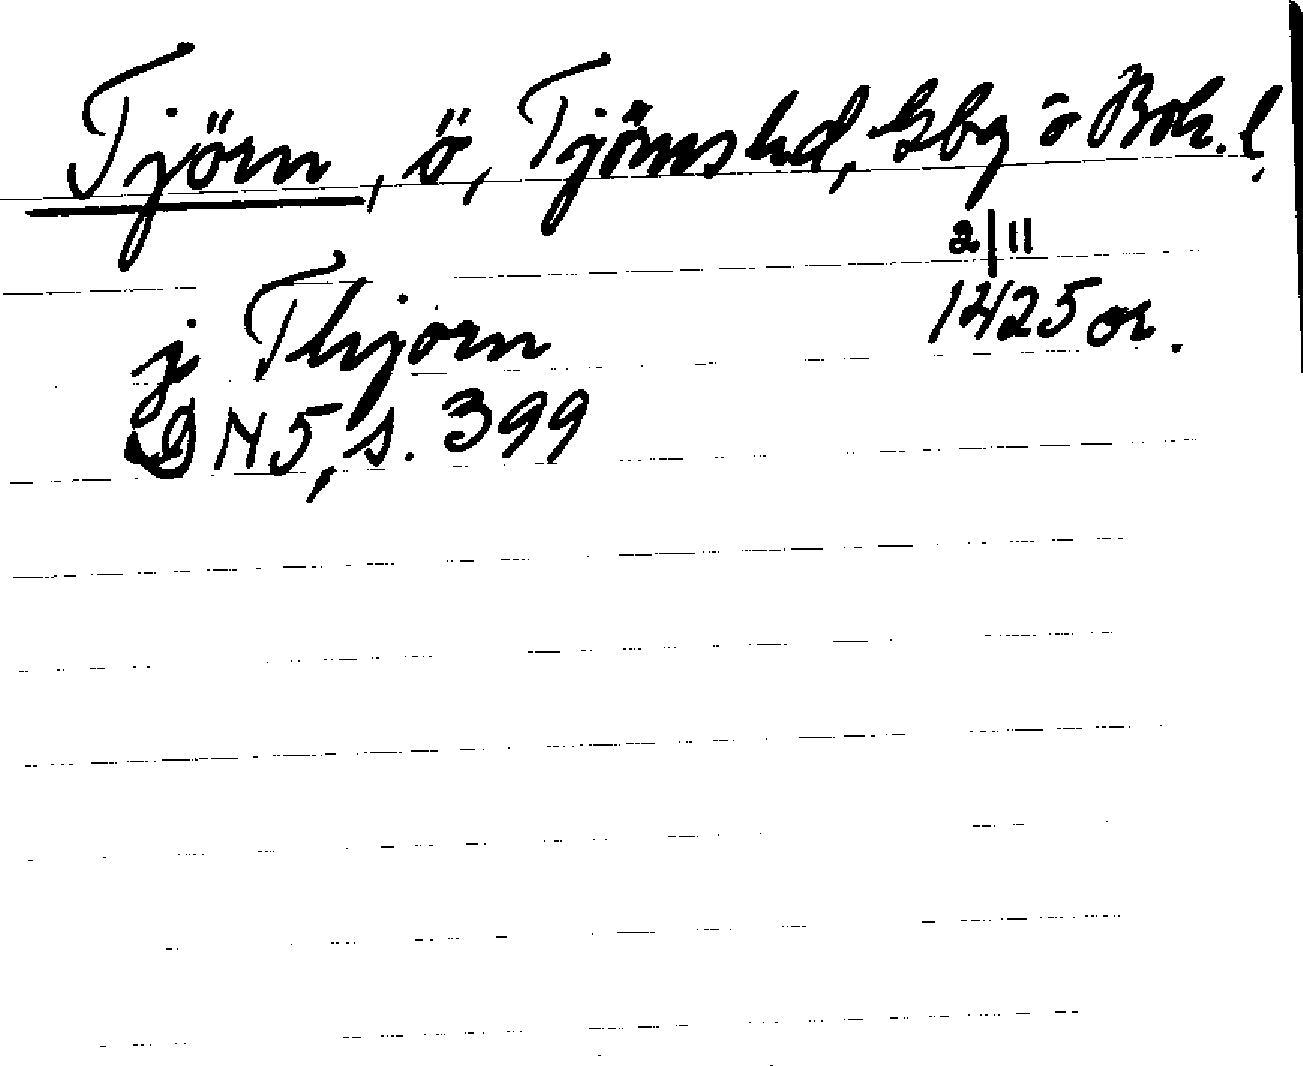 Tjörn, ö, Tjörns hd, Gbg o Boh. l.
2/11
j Thjörn 1425 or.
DN 5, s. 399